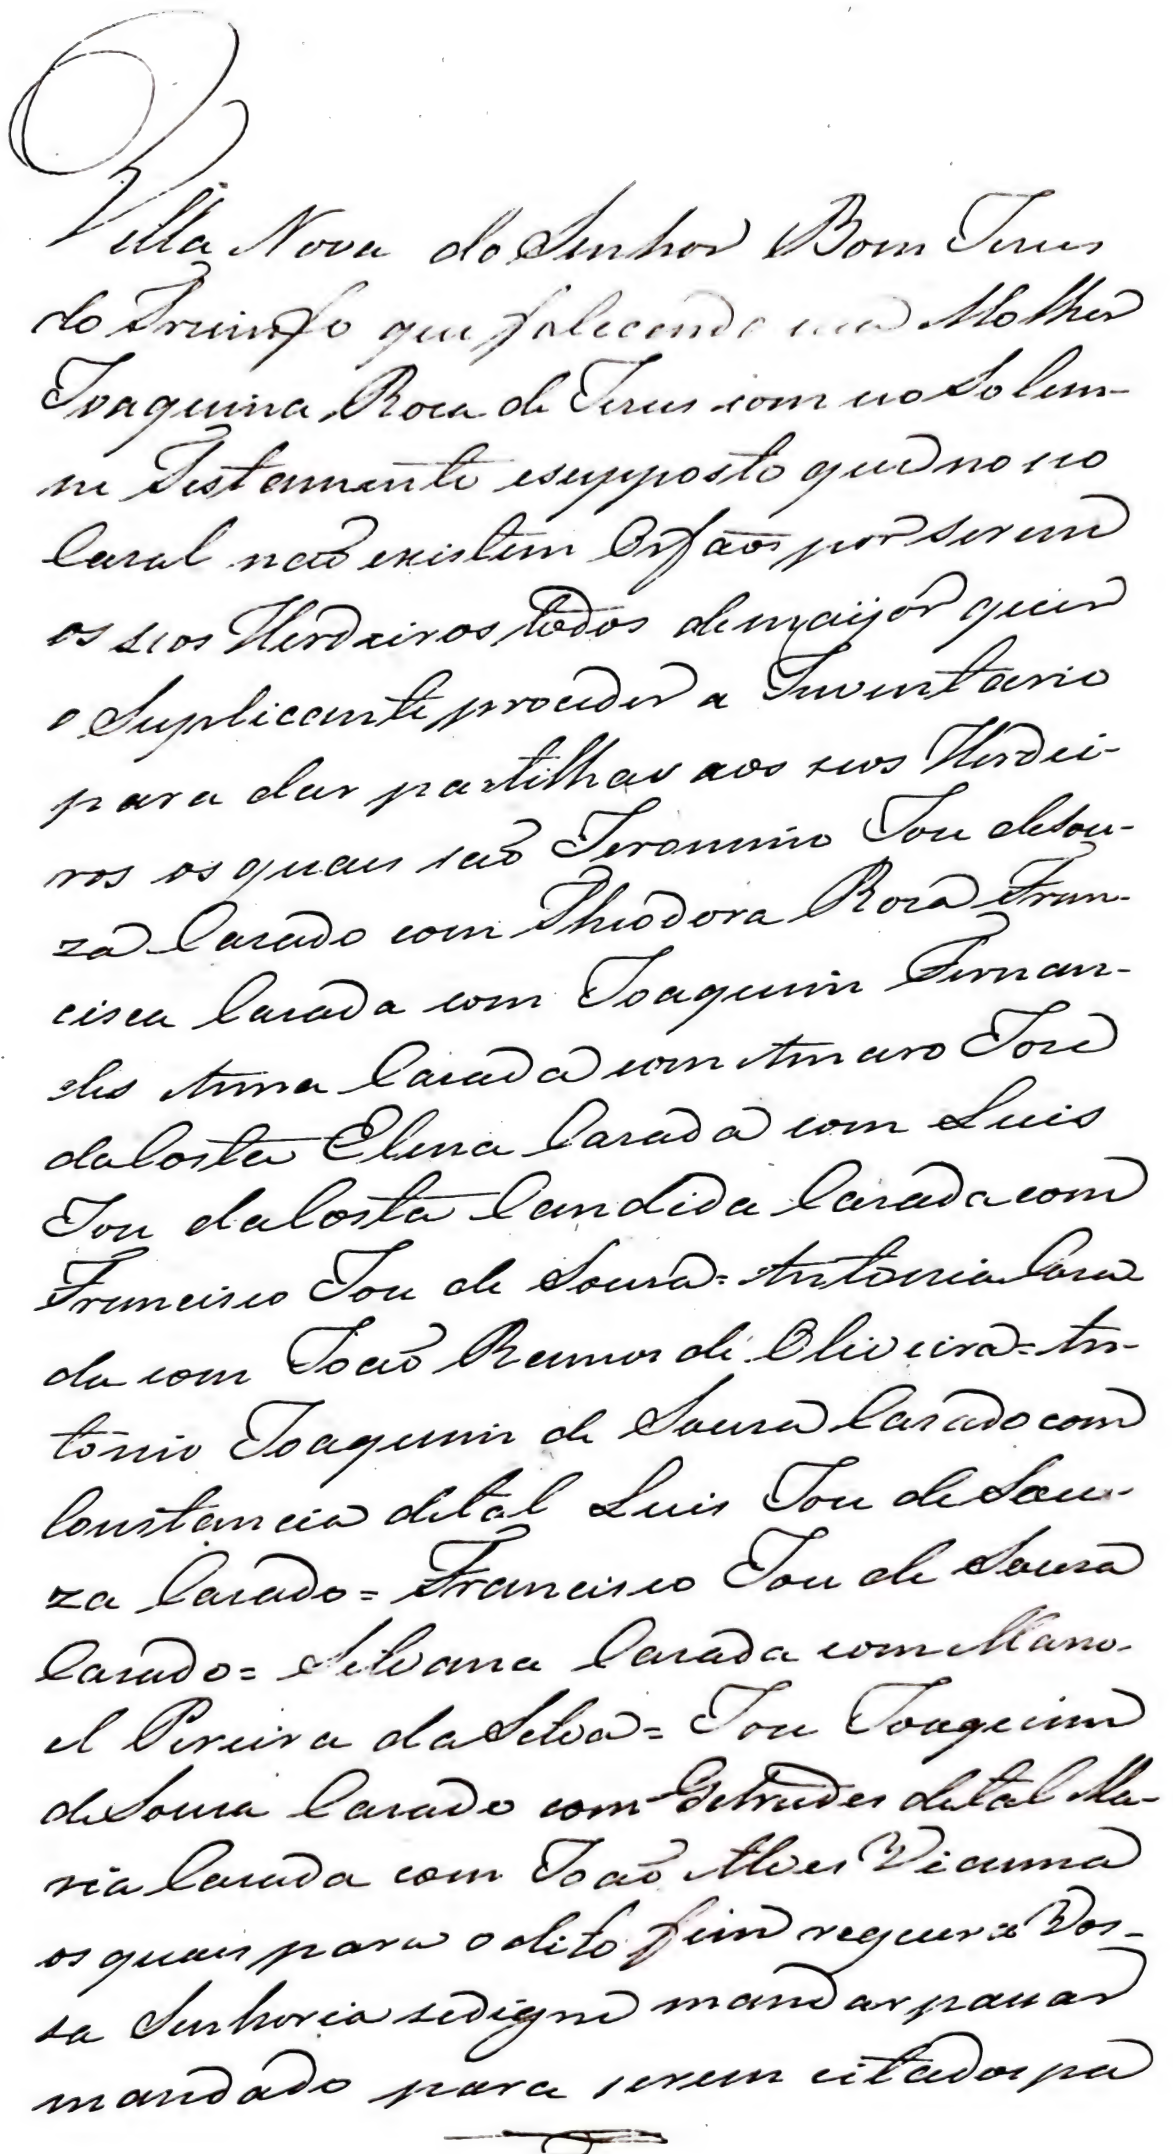 Villa Nova do Senhor Bom Jesus
do Triumfo que falecendo sua Molher
Joaquina Rosa de Jesus com seo Solem-
ne Testamento esupposto que no seo
Casal não existem Orfãos por serem
os seos Herdeiros todos demaijor quer
o Suplicante proceder a Inventario
para dar partilhas aos seos Herdei-
ros os quais são Jeronimo Jose deSou-
za Casado com Theodora Rosa Fran-
cisca Casada com Joaquim Fernan-
des Anna Casada com Amaro José
da Costa Elena Casada com Luis
Jose da Costa Candida Casada com
Francisco Jose de Sousa = Antonia Casa
da com João Ramos de Oliveira = An-
tonio Joaquim de Sousa Casado com
Constancia detal Luis Jose de Sou-
za Casado = Francisco Jose de Sousa
Casado = Silvana Casada com Mano-
el Pereira da Silva = Jose Joaquim
de Sousa Casado com Getrudes detal Ma-
ria Casada com João Alves Vianna
os quais para o dito fim requer a Vos-
sa Senhoria sedigne mandar passar
mandado para serem citados pa